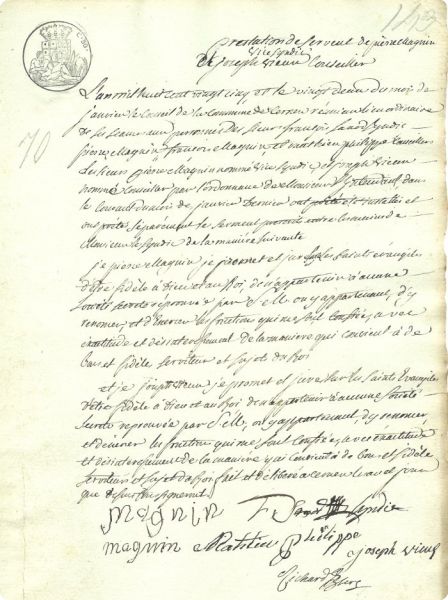 prestation de serment de pierre Magnin
vice sindic
de joseph vieux Conseiller
L'an mil huit cent vingt cinq et le vingt deux du mois de
janvier le conseil de la Commune de reuni au lieu ordinaire
de ses seances aux personnes des sieurs françois sindic
pierre Magnin françois Magnin et philippe Conseillers
Les sieurs pierre Magnin nommé vice sindic, et joseph vieux
nommé Conseiller par l'ordonnance de Monsieur l'intendant dans
le courant du mois de janvier dernier ont
ont prêté separément le serment entre les mains de
Monsieur le sindic de la manière suivante
je pierre Magnin je promet et jure sur les saints évangiles
d'être fidèle à Dieu et au Roi, de n'appartenir à aucune
société secrete reprouvée par S. M. ou y appartenant, d'y
renoncer, et d'exercer les fonctions qui me sont confiées, avec
exactitude et désintéressement de la manière qui convient à de
bon et fidèle serviteur et sujet du Roi
et je joseph vieux je promet et jure sur les saints Evangiles
d'être fidèle à Dieu et au Roi de n'appartenir à aucune société
secrete reprouvée par S. M. ou y appartenant, d'y renoncer,
et d'exercer les fonctions qui me sont confiées, avec exactitude
et désintéressement de la manière qui convient de bon et fidèle
serviteur et sujet fait et délibéré les an et jour
que dessus
magnin F sindic
magnin philippe
joseph vieux
70